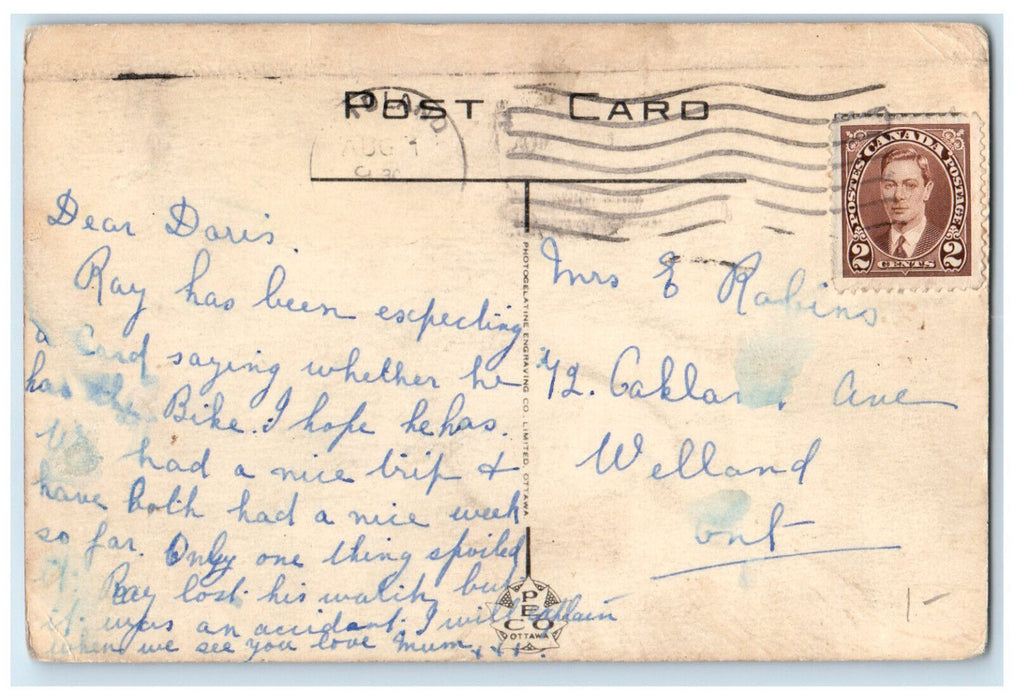 POST CARD
AUG 1
POSTES CANADA POSTAGE
2 CENTS 2
Dear Doris.
Ray has been expecting
a Card saying whether he
has the Bike. I hope he has.
We had a nice trip &
have both had a nice week
so far. Only one thing spoiled
it. Ray lost his watch, but
it was an accident. I will explain
when we see you love Mum xxx.
PHOTOGELATINE ENGRAVING CO. LIMITED, OTTAWA
PECO
OTTAWA
Mrs E Robins
42. Oakland Ave
Welland
Ont
1-